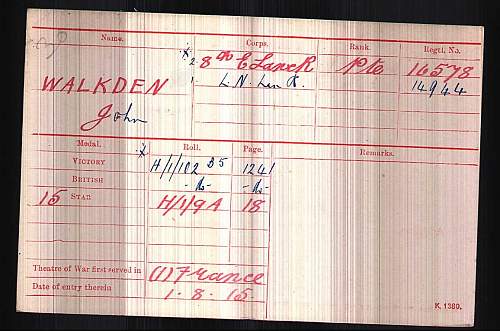 Name. Corps. Rank. Regtl. No.
WALKDEN x2. 8th E LancR Pte 16578
John 1 L. N. Lan R. 14944
Medal. x Roll. Page. Remarks.
VICTORY H/1/102 B5 1241
BRITISH -do- -do-
15 STAR H/1/9A 18
Theatre of War first served in (1) France
Date of entry therein 1. 8. 15.
K. 1380.